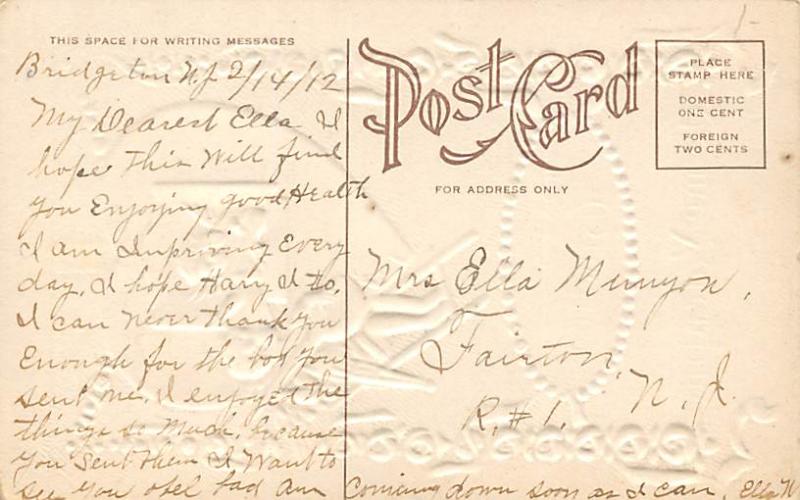 THIS SPACE FOR WRITING MESSAGES
Bridgeton NJ 2/14/12
My Dearest Ella I
hope this Will find
you Enjoying good Health
I am Improving Every
day. I hope Harry is to,
I can never thank you
Enough for the box you
sent me. I enjoyed the
things so Much, because
you sent them I Want to
see you bad am Comeing down soon as I can, Ella
Post Card
FOR ADDRESS ONLY
PLACE
STAMP HERE
DOMESTIC
ONE CENT
FOREIGN
TWO CENTS
Mrs Ella Munyon,
Fairton
R. # 1. N. J.